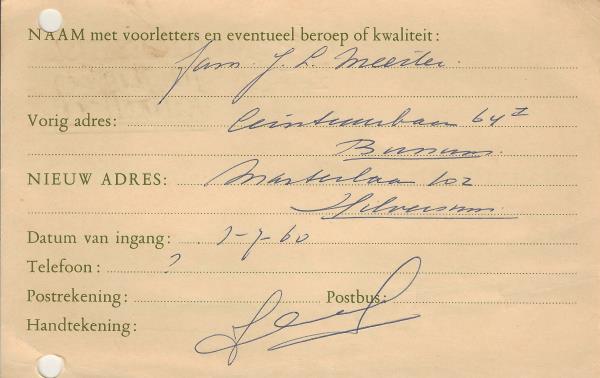 NAAM met voorletters en eventueel beroep of kwaliteit:
Fam. J. L. Meester.
Vorig adres: Ceintuurbaan 64 I
Bussum.
NIEUW ADRES: 102
Hilversum
Datum van ingang: 1-7-60
Telefoon: ?
Postrekening: Postbus:
Handtekening: